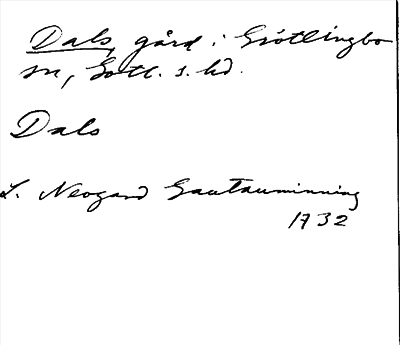 Dals, gård i Grötlingbo
sn, Gotl. s. hd.
Dals
L. Neogard Gautauminning
1732